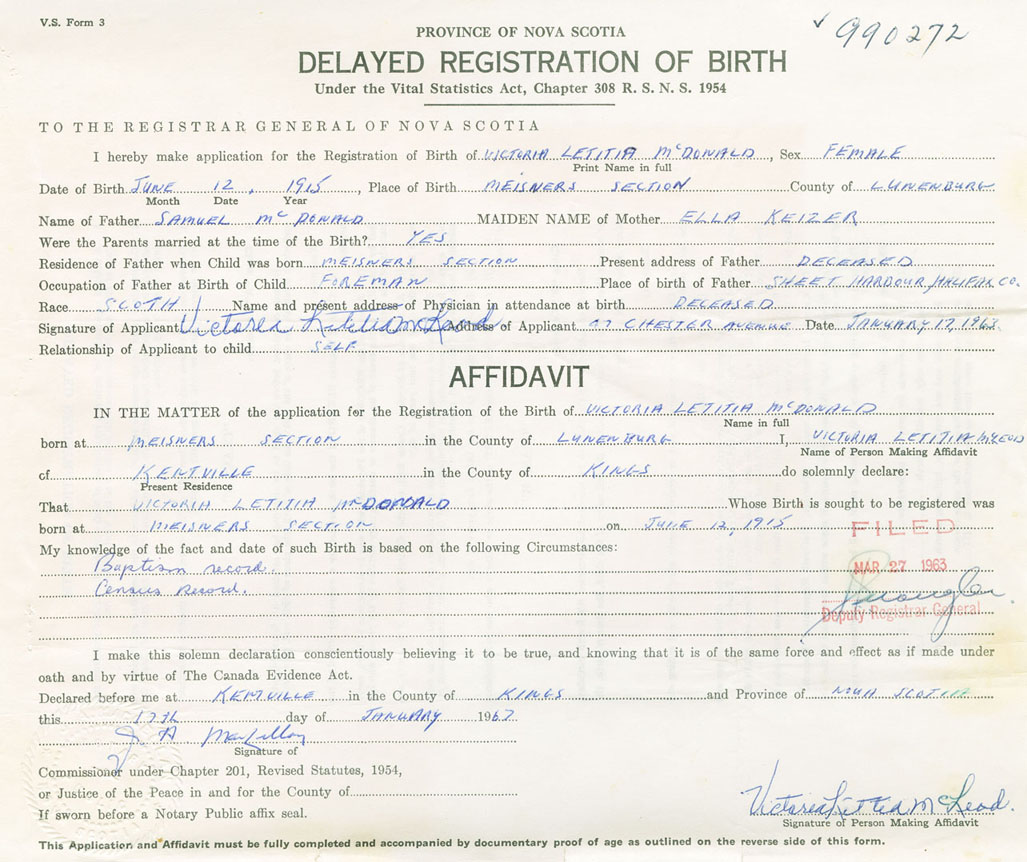 V.S. Form 3
✓ 990272
PROVINCE OF NOVA SCOTIA
DELAYED REGISTRATION OF BIRTH
Under the Vital Statistics Act, Chapter 308 R. S. N. S. 1954
TO THE REGISTRAR GENERAL OF NOVA SCOTIA
I hereby make application for the Registration of Birth of VICTORIA LETITIA McDONALD, Sex FEMALE
Print Name in full
Date of Birth JUNE 12, 1915, Place of Birth MEISNERS SECTION County of LUNENBURG
Month Date Year
Name of Father SAMUEL McDONALD MAIDEN NAME of Mother ELLA KEIZER
Were the Parents married at the time of the Birth? YES
Residence of Father when Child was born MEISNERS SECTION Present address of Father DECEASED
Occupation of Father at Birth of Child FOREMAN Place of birth of Father SHEET HARBOUR HALIFAX CO.
Race SCOTH Name and present address of Physician in attendance at birth DECEASED
Signature of Applicant Victoria Letitia McLeod Address of Applicant 47 CHESTER AVENUE Date JANUARY 17, 1963
Relationship of Applicant to child SELF
AFFIDAVIT
IN THE MATTER of the application for the Registration of the Birth of VICTORIA LETITIA McDONALD
Name in full
born at MEISNERS SECTION in the County of LUNENBURG I, VICTORIA LETITIA McLEOD
Name of Person Making Affidavit
of KENTVILLE in the County of KINGS do solemnly declare:
Present Residence
That VICTORIA LETITIA McDONALD Whose Birth is sought to be registered was
born at MEISNERS SECTION on JUNE 12, 1915
FILED
My knowledge of the fact and date of such Birth is based on the following Circumstances:
Baptism record.
MAR 27 1963
Census Record.
Deputy Registrar General
I make this solemn declaration conscientiously believing it to be true, and knowing that it is of the same force and effect as if made under
oath and by virtue of The Canada Evidence Act.
Declared before me at KENTVILLE in the County of KINGS and Province of NOVA SCOTIA
this 17th day of JANUARY 1963
J. A.
Signature of
Commissioner under Chapter 201, Revised Statutes, 1954,
or Justice of the Peace in and for the County of
If sworn before a Notary Public affix seal.
Victoria Letitia McLeod.
Signature of Person Making Affidavit
This Application and Affidavit must be fully completed and accompanied by documentary proof of age as outlined on the reverse side of this form.